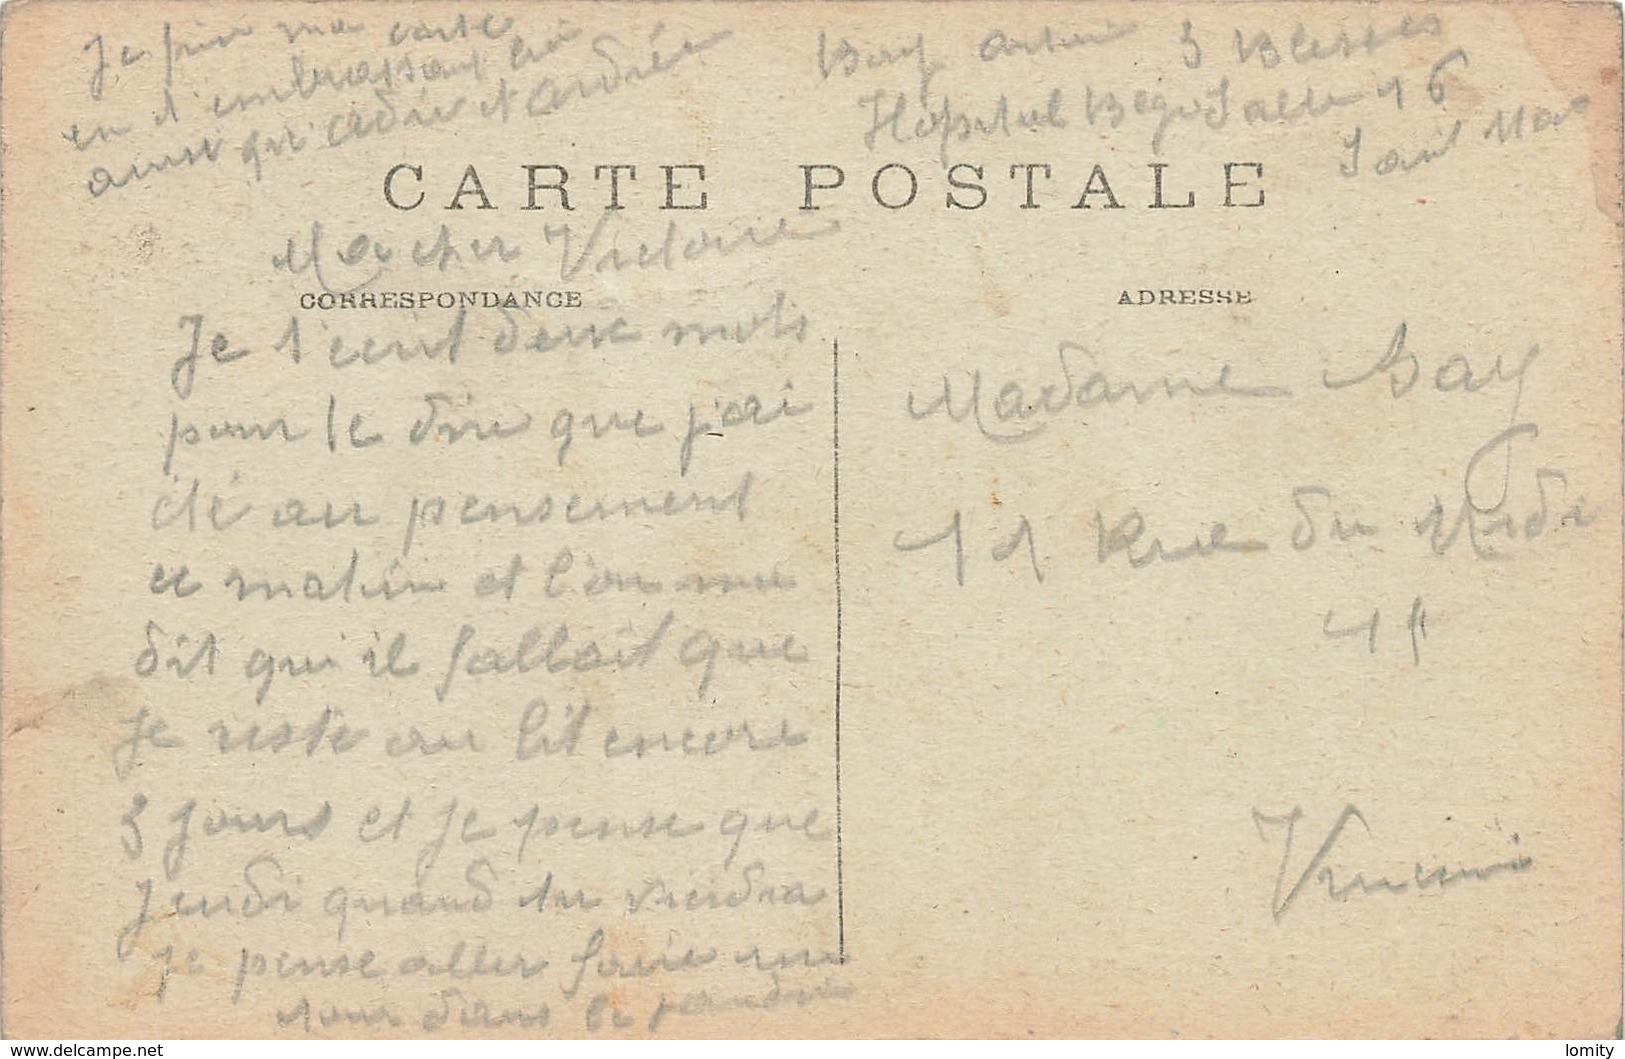 Je fini ma carte
en t'embrassant toi
ainsi qu' Adrie et Andrée
Bay 3 Blessés
Hopital Begin Salle 16
Saint Man
CARTE POSTALE
Ma cher Victoire
CORRESPONDANCE
ADRESSE
Je t'ecrit deux mots
pour te dire que j'ai
été au pensement
ce matin et l'on ma
dit qu'il fallait que
je reste au lit encore
3 jours et je pense que
Jeudi quand tu viendra
je pense aller faire un
tour dans le
Madame Bay
11 Rue du Midi
11
delcampe.net
lomity